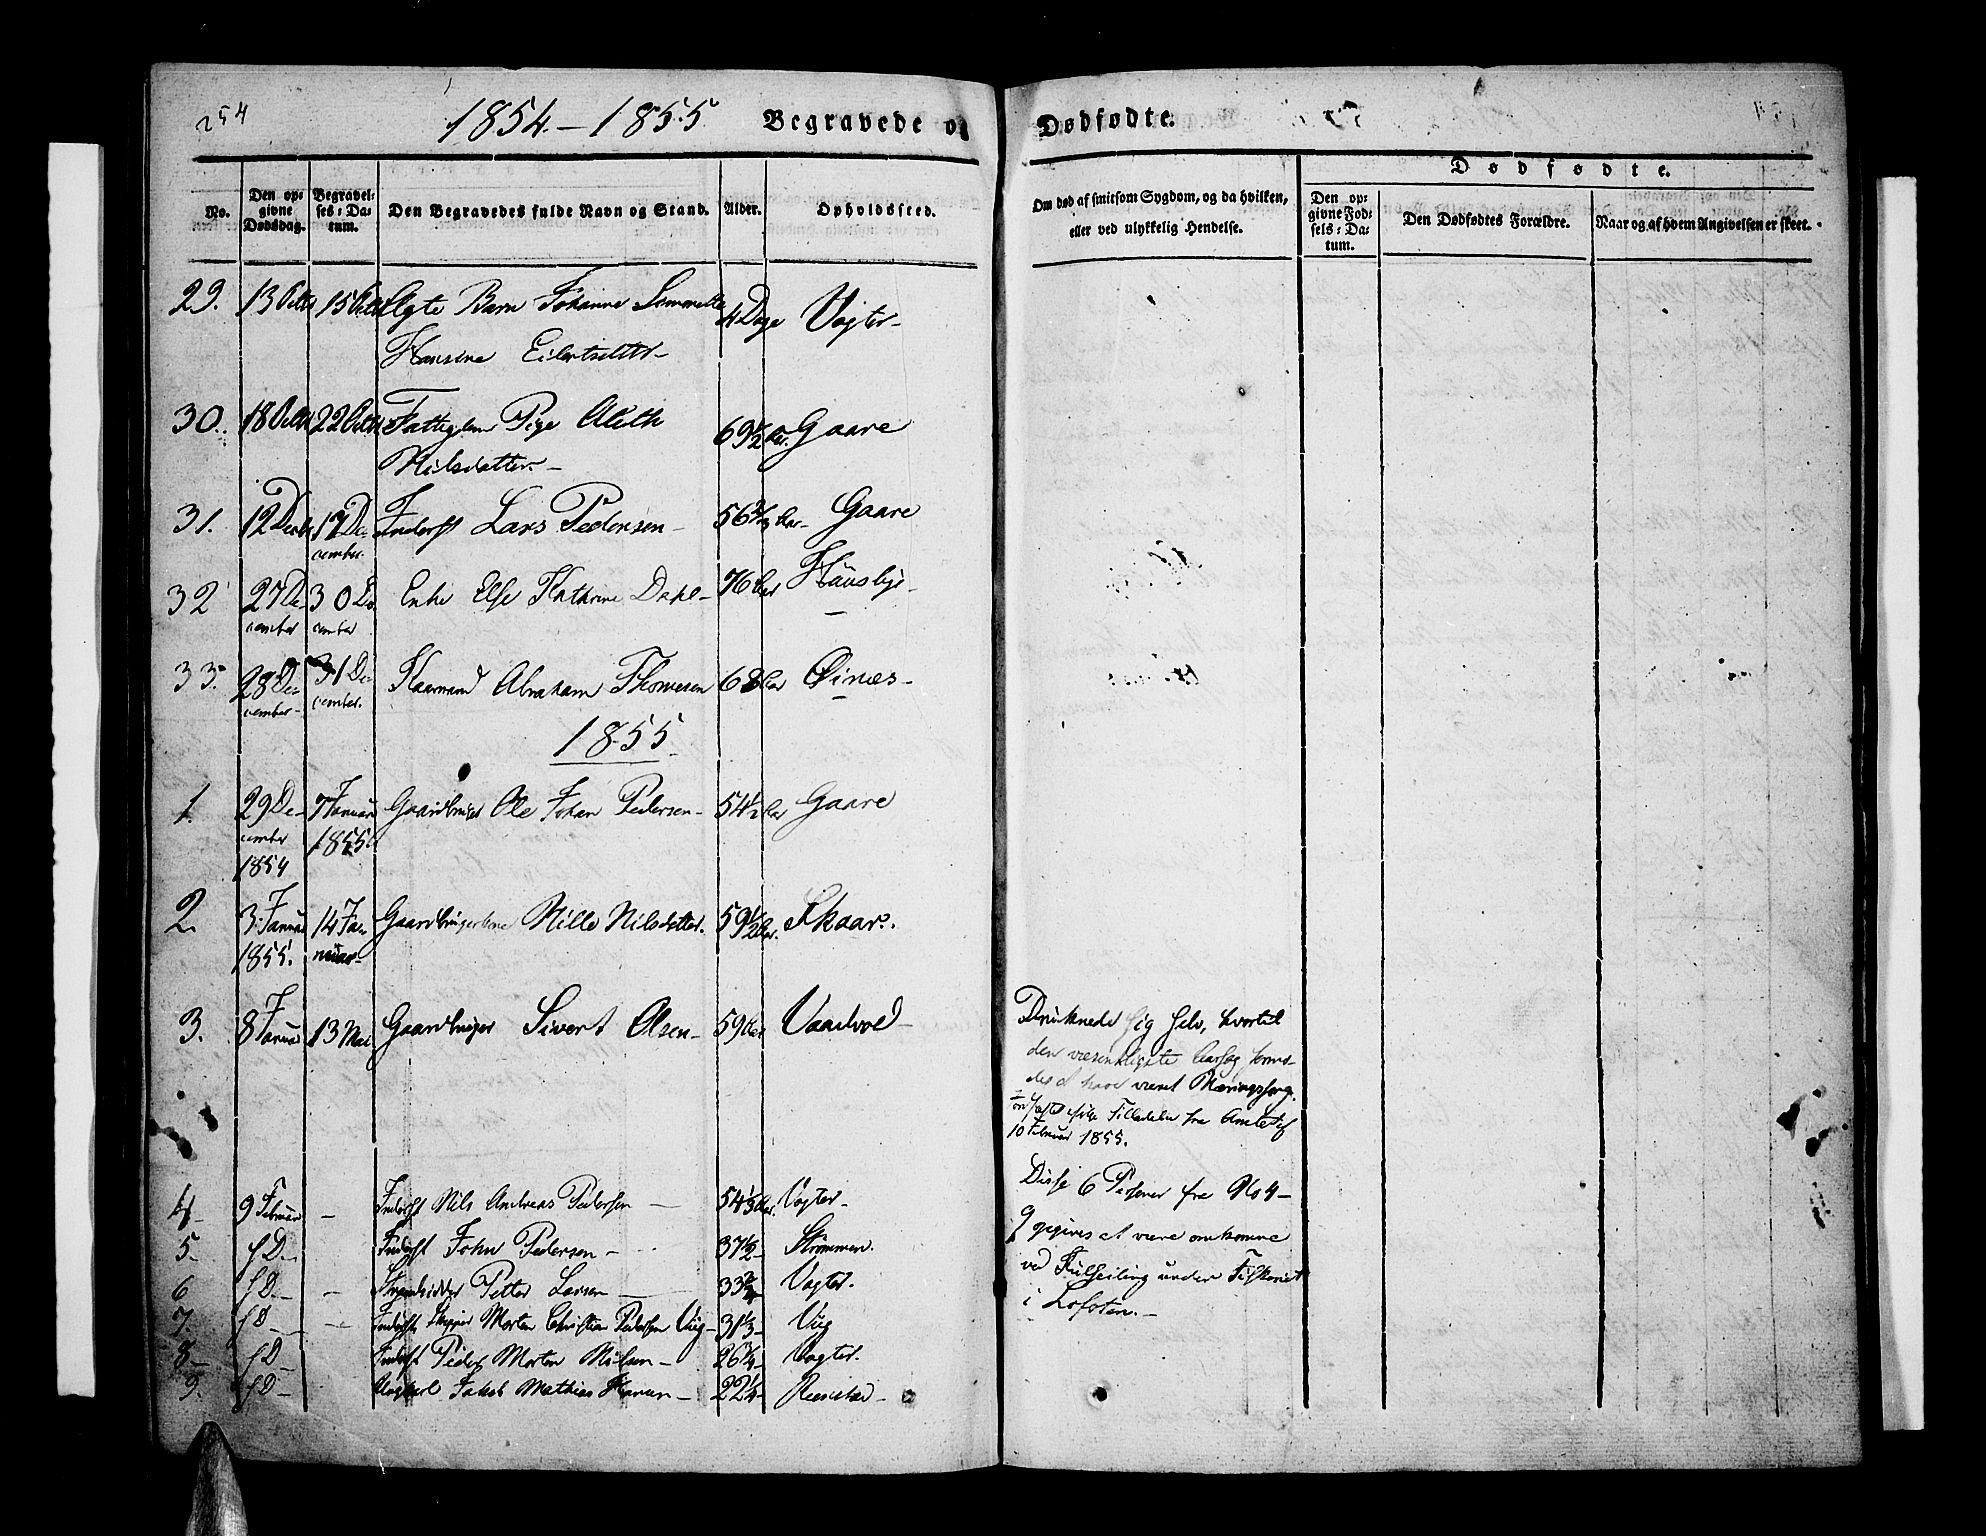 254
1854.–1855. Begravede og Dødfødte.
Dødfødte.
No. Den opgivne Dødsdag. Begravelses-Datum. Den Begravedes fulde Navn og Stand. Alder. Opholdssted. Om død af smitsom Sygdom, og da hvilken, eller ved ulykkelig Hendelse. Den opgivne Fødsels-Datum. Den Dødfødtes Forældre. Naar og af hvem Angivelsen er skeet.
29. 13 Octbr 15 Octbr Ægte Barn Johanna
Hansine Eilertsdatter – 4 Dage Vogter –
30. 18 Octbr 22 Octbr Fattiglem Pige Aleth
Nilsdatter. – 69½ Aar. Gaare
31. 12 Decbr 17 December Inderst Lars Pedersen – 56 Aar – Gaare
32 27 December 30 December Enke Else Kathrine Dahl – 76 Aar Huusbye –
33. 28 December – 31 December. Kaarmand Abraham Thomesen 68 Aar Øinæs –
1855
1. 29 December 1854 7 Januar 1855 Gaardbruger Ole Johan Pedersen – 54½ Aar Gaare
2. 3 Januar 1855. 14 Januar – Gaardbrugerkone Nille Nilsdatter. 59½ Aar. Skaar.
3. 8 Januar 13 Mai Gaardbruger Sivert Olsen – 59 Aar Vaadvold –
Druknede sig selv, hvortil
den væsentligste Aarsag formodes
at have været Næringssorg.
Tilladelse fra Amtet af
10 Februar 1855.
4 – 9 Februar – Inderst Nils Andreas Pedersen – 54⅓ Aar. Vogter –
5. sD – Inderst John Pedersen – 37½ – Strømmen.
6 sD. – – Petter Larsen – 33¾ Vogter.
7. sD – – Skipper Morten Christian Pedersen Viig – 31⅓ – Viig
8 – sD – Inderst Peder Morten Nilsen – 26¼ – Vogter.
9. sD – Ungkarl Jakob Mathias Hansen – 22¼ –
Disse 6 Personer fra No 4 –
9 opgives at være omkomne
ved Kulseiling under Fiskeriet
i Lofoten. –